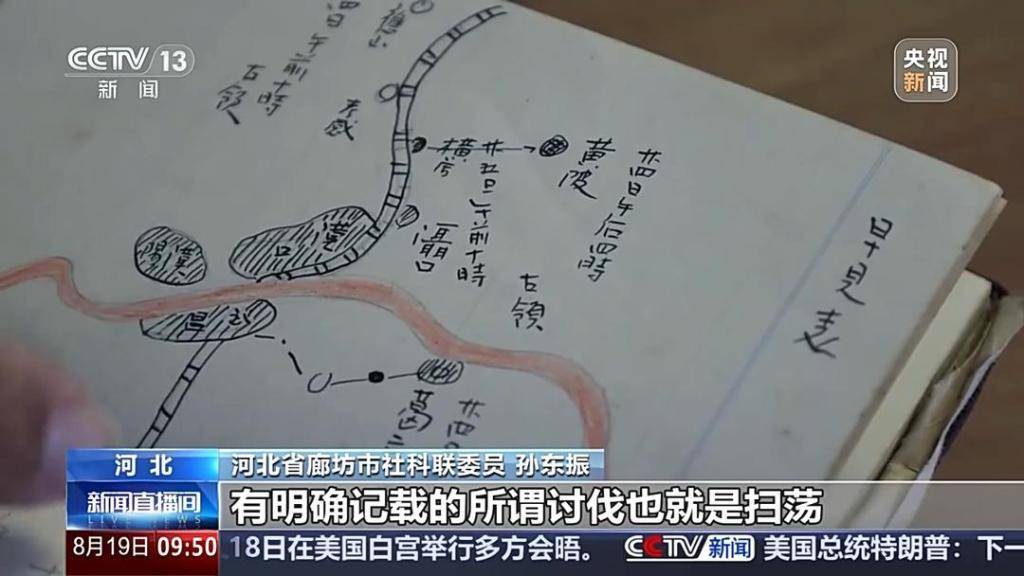 CCTV 13
新闻
央视
新闻
午前十時
占領
孝感
横店
廿五日午前十時
黄陂
廿四日午后四時
占領
漢口
漢陽
武昌
日見表
葛
河北
河北省廊坊市社科联委员 孙东振
新闻直播间
LIVE NEWS
有明确记载的所谓讨伐也就是扫荡
8月19日 09:50
18日在美国白宫举行多方会晤。
CCTV新闻
美国总统特朗普：下一